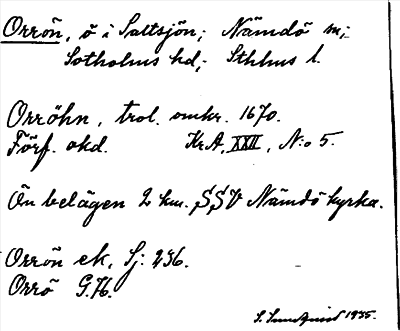 Orrön, ö i Saltsjön; Nämdö sn;
Sotholms hd; Sthlms l.
Orröhn, trol. omkr. 1670.
Förf. okd. Kr.A, XXII, N:o 5.
Ön belägen 2 km. SSV Nämdö kyrka.
Orrön ek, Sj: 236.
Orrö G.K.
S. Sundquist 1935.